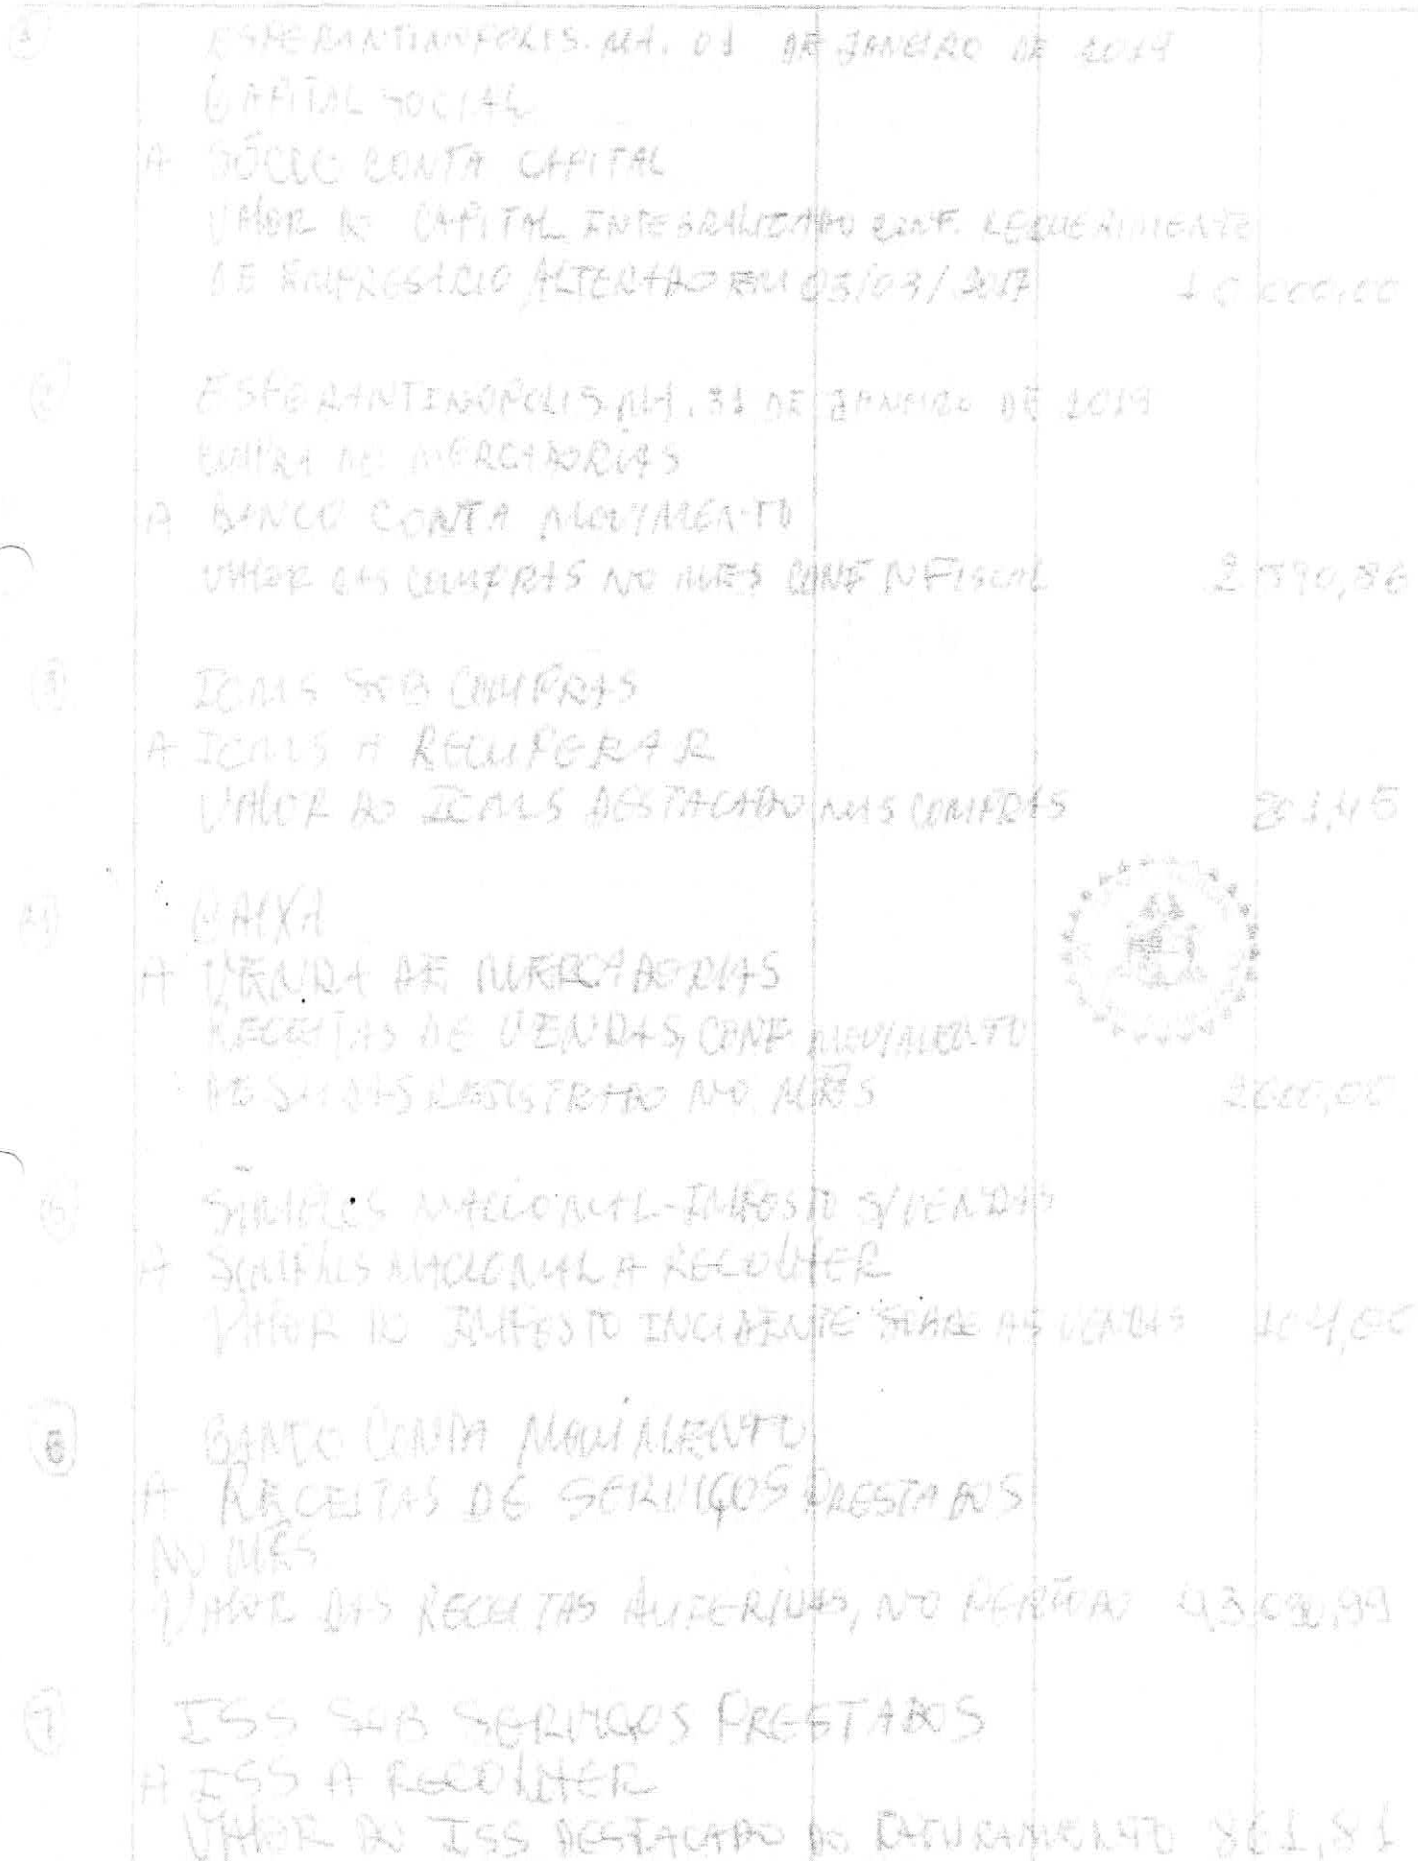 ESPERANTINOPOLIS-MA, 01 DE JANEIRO DE 2019
CAPITAL SOCIAL
A SÓCIO CONTA CAPITAL
VALOR DO CAPITAL INTEGRALIZADO CONF. REQUERIMENTO
DE EMPRESÁRIO ALTERADO EM 03/03/2017 10.000,00
2 ESPERANTINÓPOLIS MA, 31 DE JANEIRO DE 2019
COMPRA DE MERCADORIAS
A BANCO CONTA MOVIMENTO
VALOR DAS COMPRAS NO MÊS CONF N FISCAL
3 ICMS SOB COMPRAS
A ICMS A RECUPERAR
VALOR DO ICMS DESTACADO NAS COMPRAS
CAIXA
A VENDA DE MERCADORIAS
RECEITAS DE VENDAS, CONF MOVIMENTO
DE SAIDAS REGISTRADO NO MÊS 2.000,00
5 SIMPLES NACIONAL-IMPOSTO S/VENDAS
A SIMPLES NACIONAL A RECOLHER
VALOR DO IMPOSTO INCIDENTE SOBRE AS VENDAS 104,00
6 BANCO CONTA MOVIMENTO
A RECEITAS DE SERVIÇOS PRESTADOS
NO MÊS
VALOR DAS RECEITAS AUFERIDAS, NO PERÍODO 43.090,99
7 ISS SOB SERVIÇOS PRESTADOS
A ISS A RECOLHER
VALOR DO ISS DESTACADO DO FATURAMENTO 861,81